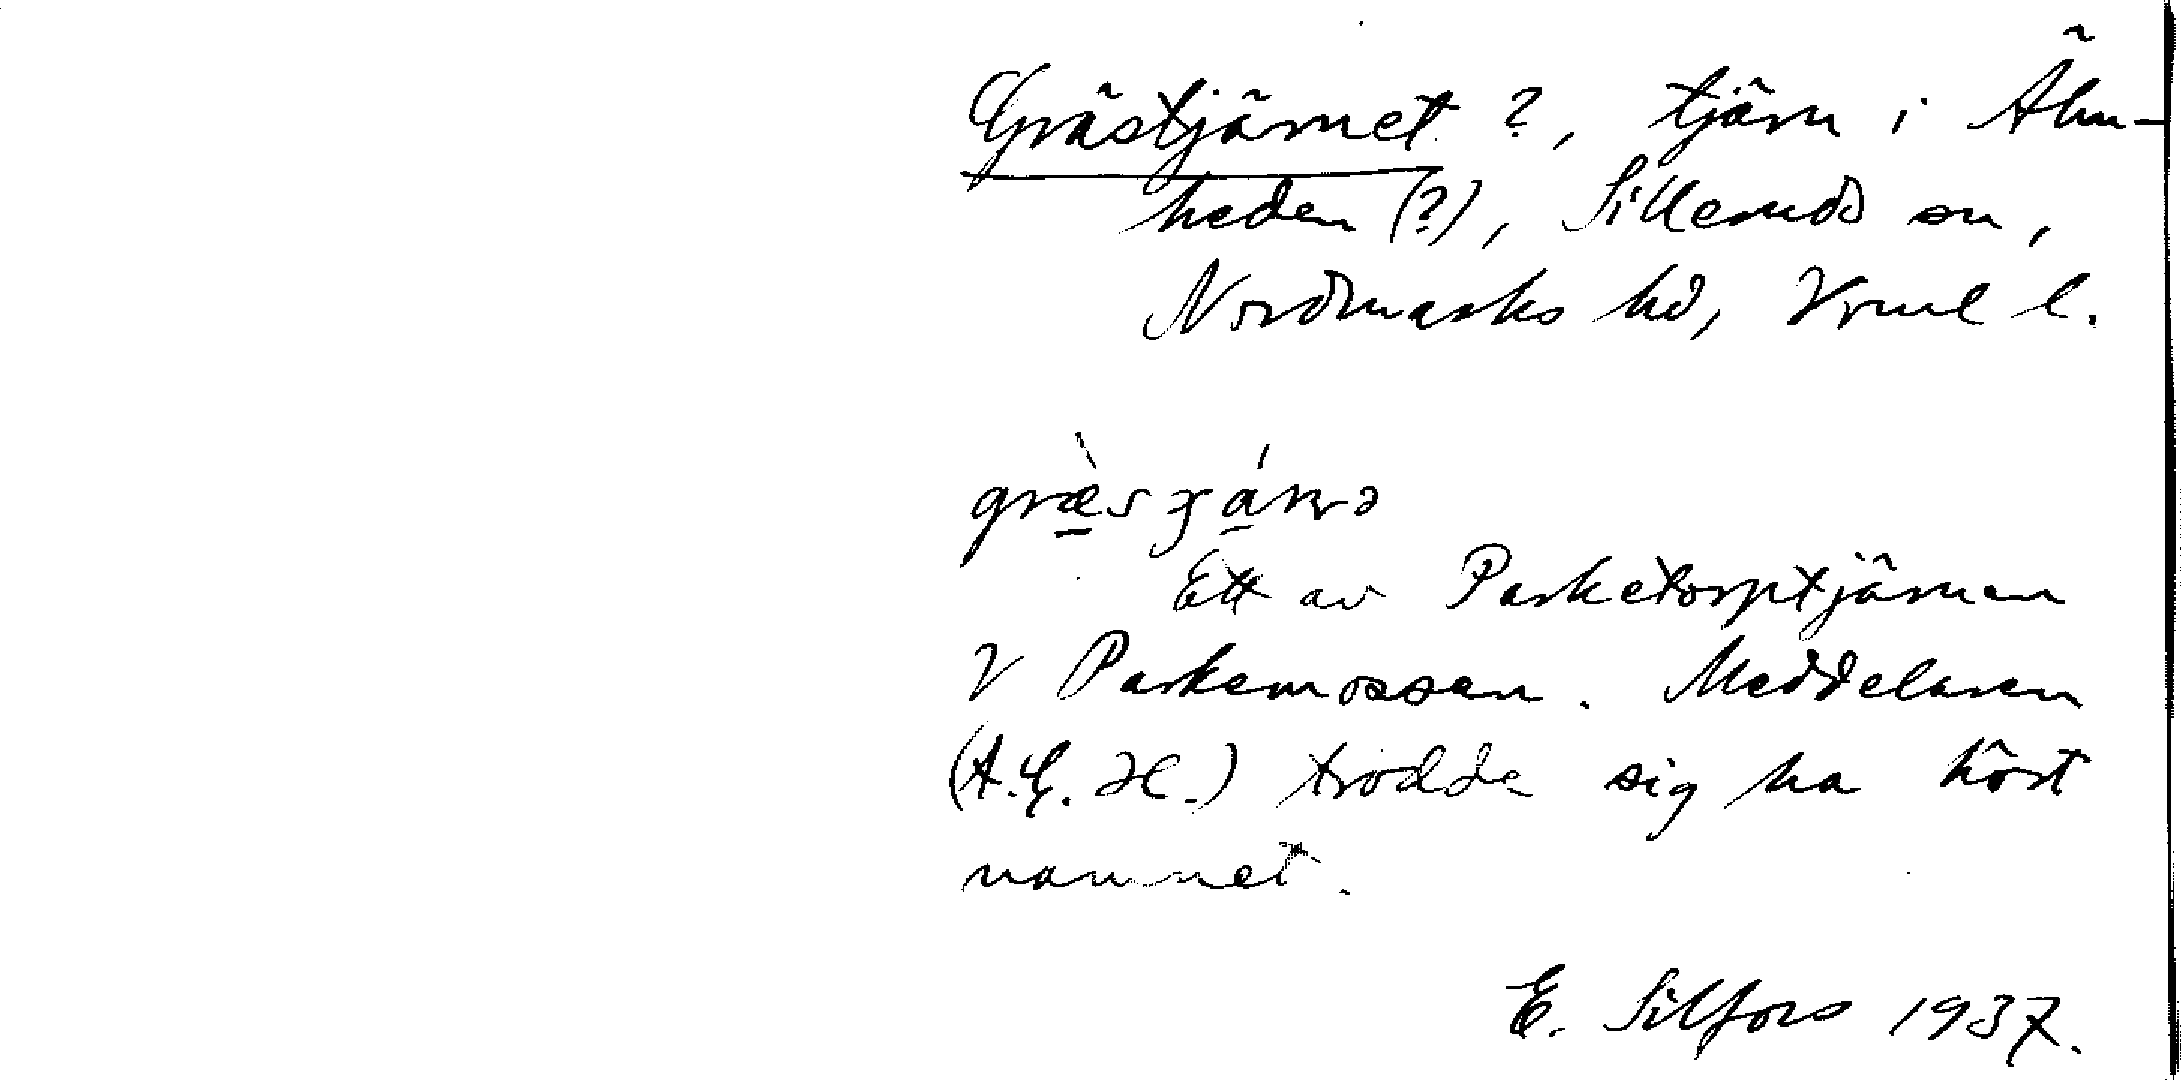 Grästjärnet ?, tjärn i Älm-
heden (?), Silleruds sn,
Nordmarks hd, Vrml l.
Ett av Parketorptjärnen
V Parkemossen. Meddelaren
(A.G. H.) trodde sig ha hört
namnet.
E. Silfors 1937.